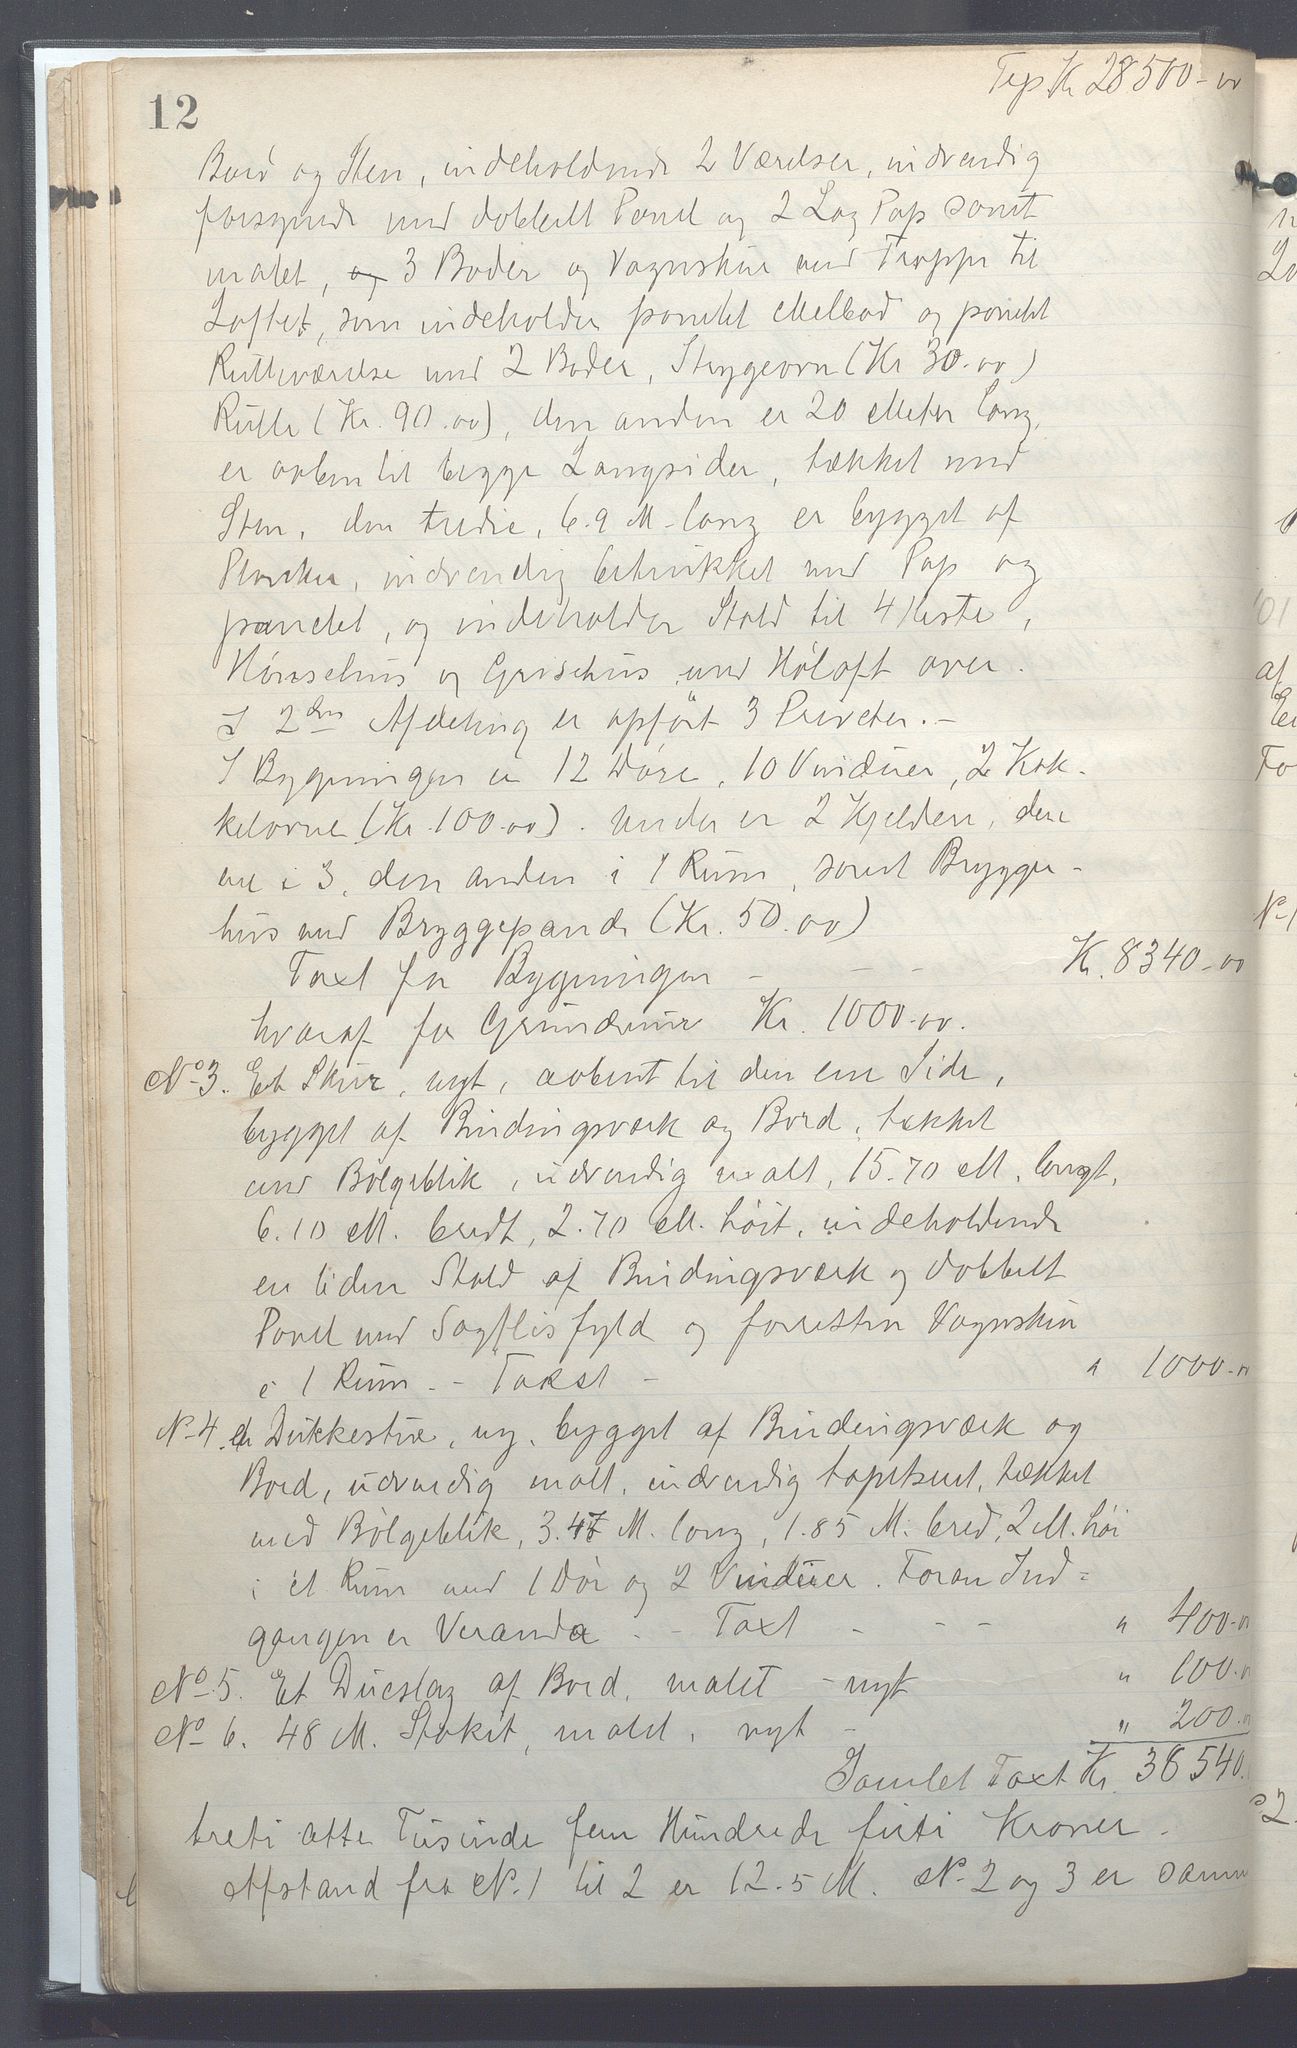 12
Trsp Kr 28500-00
Bord og Sten, indeholdende 2 Værelser, indvendig
forsynede med dobbelt Panel og 2 Lag Pap samt
malet, og 3 Boder og Vognskur med Trappe til
Loftet, som indeholder panelet Melbod og panelet
Rulleværelse med 2 Boder, Strygeovn (Kr 30.00)
Rulle (Kr. 90.00), den anden er 20 Meter lang,
er aaben til begge Langsider, tækket med
Sten, den tredie, 6.9 M. lang er bygget af
Planker, indvendig betrukket med Pap og
panelet, og indeholder Stald til 4 Heste,
Hønsehus og Grisehus med Høloft over.
I 2den Afdeling er opført 3 Priveter.-
I Bygningen er 12 Døre, 10 Vinduer, 2 Kak-
kelovne (Kr. 100.00). Under er 2 Kjeldere, den
ene i 3, den anden i 1 Rum, samt Brygge-
hus med Bryggepande (Kr. 50.00)
Taxt for Bygningen - - - Kr. 8340-00
hvoraf for Grundmur Kr. 1000.00.
No 3. Et Skur, nyt, aabent til den ene Side,
bygget af Bindingsværk og Bord, tækket
med Bølgeblik, udvendig malt, 15.70 M. langt,
6.10 M. bredt, 2.70 M. høit, indeholdende
en liden Stald af Bindingsværk og dobbelt
Panel med Sagflisfyld og forresten Vognskur
i 1 Rum. - Takst - " 1000-00
No 4. En Dukkestue, ny, bygget af Bindingsværk og
Bord, udvendig malt, indvendig tapetseret, tækket
med Bølgeblik, 3.47 M. lang, 1.85 M. bred, 2 M. høi
i et Rum med 1 Dør og 2 Vinduer. Foran Ind=
gangen er Veranda. - Taxt - - - " 400-00
No. 5. Et Dueslag af Bord, malet - nyt " 100.00
No 6. 48 M. Stakit, malet, nyt - " 200.00
Samlet Taxt Kr. 38540.
treti otte Tusinde fem Hundrede firti Kroner.
Afstand fra No. 1 til 2 er 12.5 M. No 2 og 3 er samm